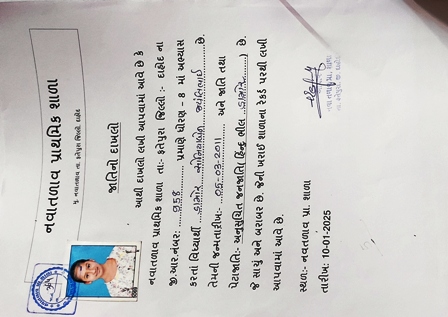 નવાતળાવ પ્રાથમિક શાળા
મુ. નવાતળાવ તા. ફતેપુરા જિલ્લો. દાહોદ
જાતિનો દાખલો
આથી દાખલો લખી આપવામાં આવે છે કે
નવાતળાવ પ્રાથમિક શાળા તા:- ફતેપુરા જિલ્લો :- દાહોદ ના
જી.આર.નંબર: પ્રમાણે ધોરણ - 8 માં અભ્યાસ
કરતાં વિદ્યાર્થી ડામોર છે.
તેમની જન્મતારીખ:- 06-03-2011 અને જાતિ તથા
પેટાજાતિ:- અનુસૂચિત જનજાતિ( હિન્દુ ભીલ ડામોર ) છે.
જે સાચું અને બરાબર છે. જેની ખરાઈ શાળાના રેકર્ડ પરથી લખી
આપવામાં આવે છે.
સ્થળ:- નવાતળાવ પ્રા. શાળા
તારીખ: 10-01-2025